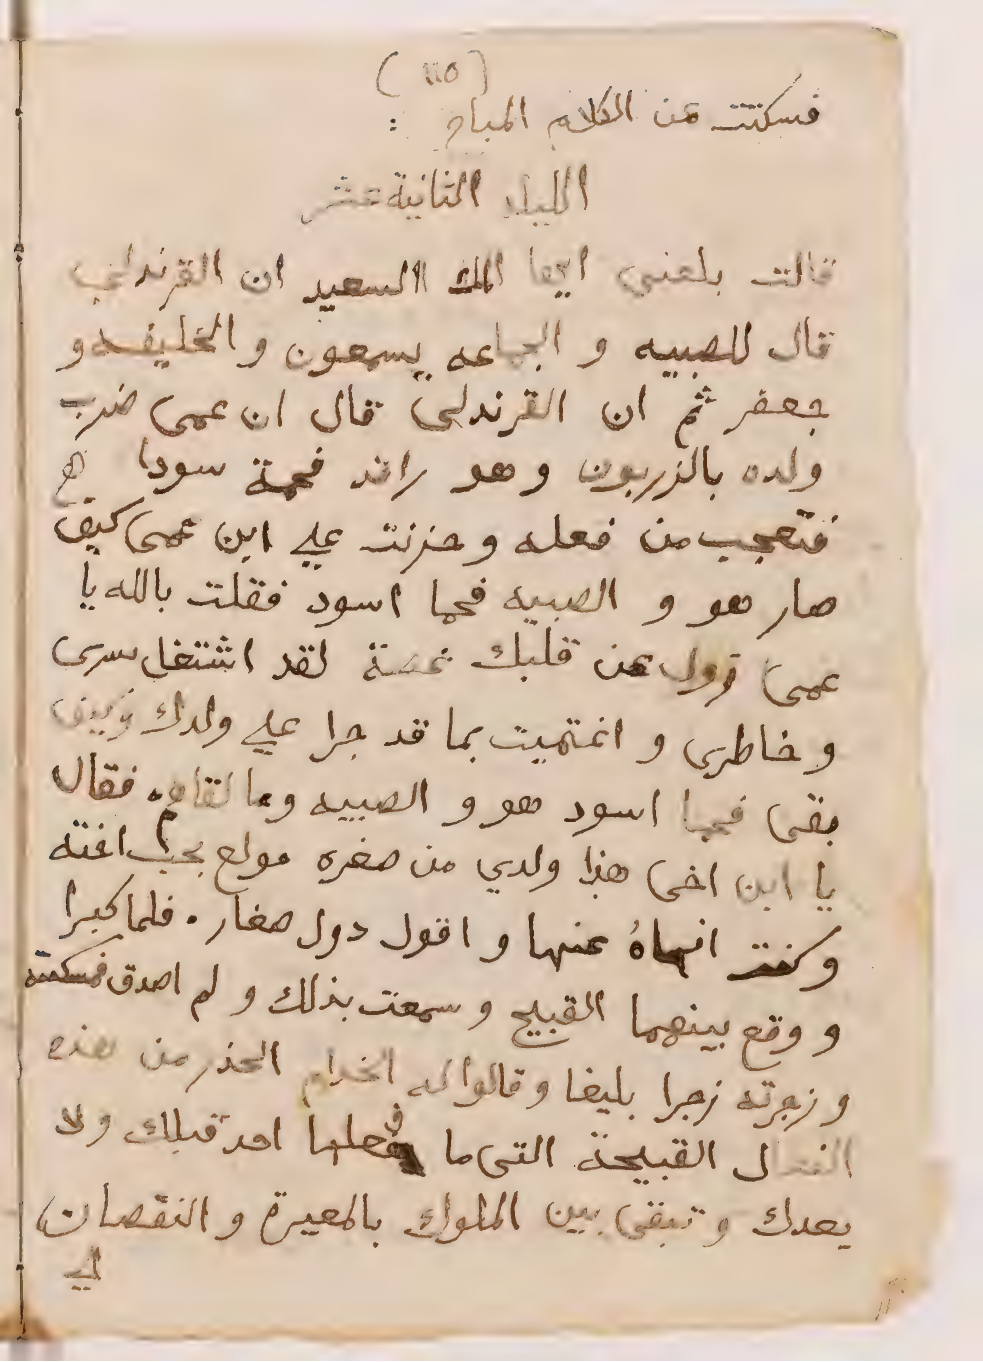 (١١٥)
فسكتت عن الكلام المباح :
الليله الثانية عشر
قالت بلغني ايها الملك السعيد ان القرندلي
قال للصبيه و الجماعه يسمعون و الخليفه و
جعفر ثم ان القرندلي قال ان عمى ضرب
ولده بالزربون و هو راقد فحمة سودا
فتعجب من فعله و حزنت علي ابن عمى كيف
صار هو و الصبيه فحما اسود فقلت بالله يا
عمى زول عن قلبك غصة لقد اشتغل سرى
و خاطرى و اغتميت بما قد جرا علي ولدك وكيف
بقى فحما اسود هو و الصبيه وما لقاهم فقال
يا ابن اخى هذا ولدي من صغره مولع بحب اخته
و كنت انهاهُ عنها و اقول دول صغار . فلما كبرا
و وقع بينهما القبيح و سمعت بذلك و لم اصدق فمسكته
و زجرته زجرا بليغا و قالوا له الخدام الحذر من هذه
الفعال القبيحة التى ما فعلها احد قبلك ولا
بعدك و تبقى بين الملوك بالمعيرة و النقصان
الي